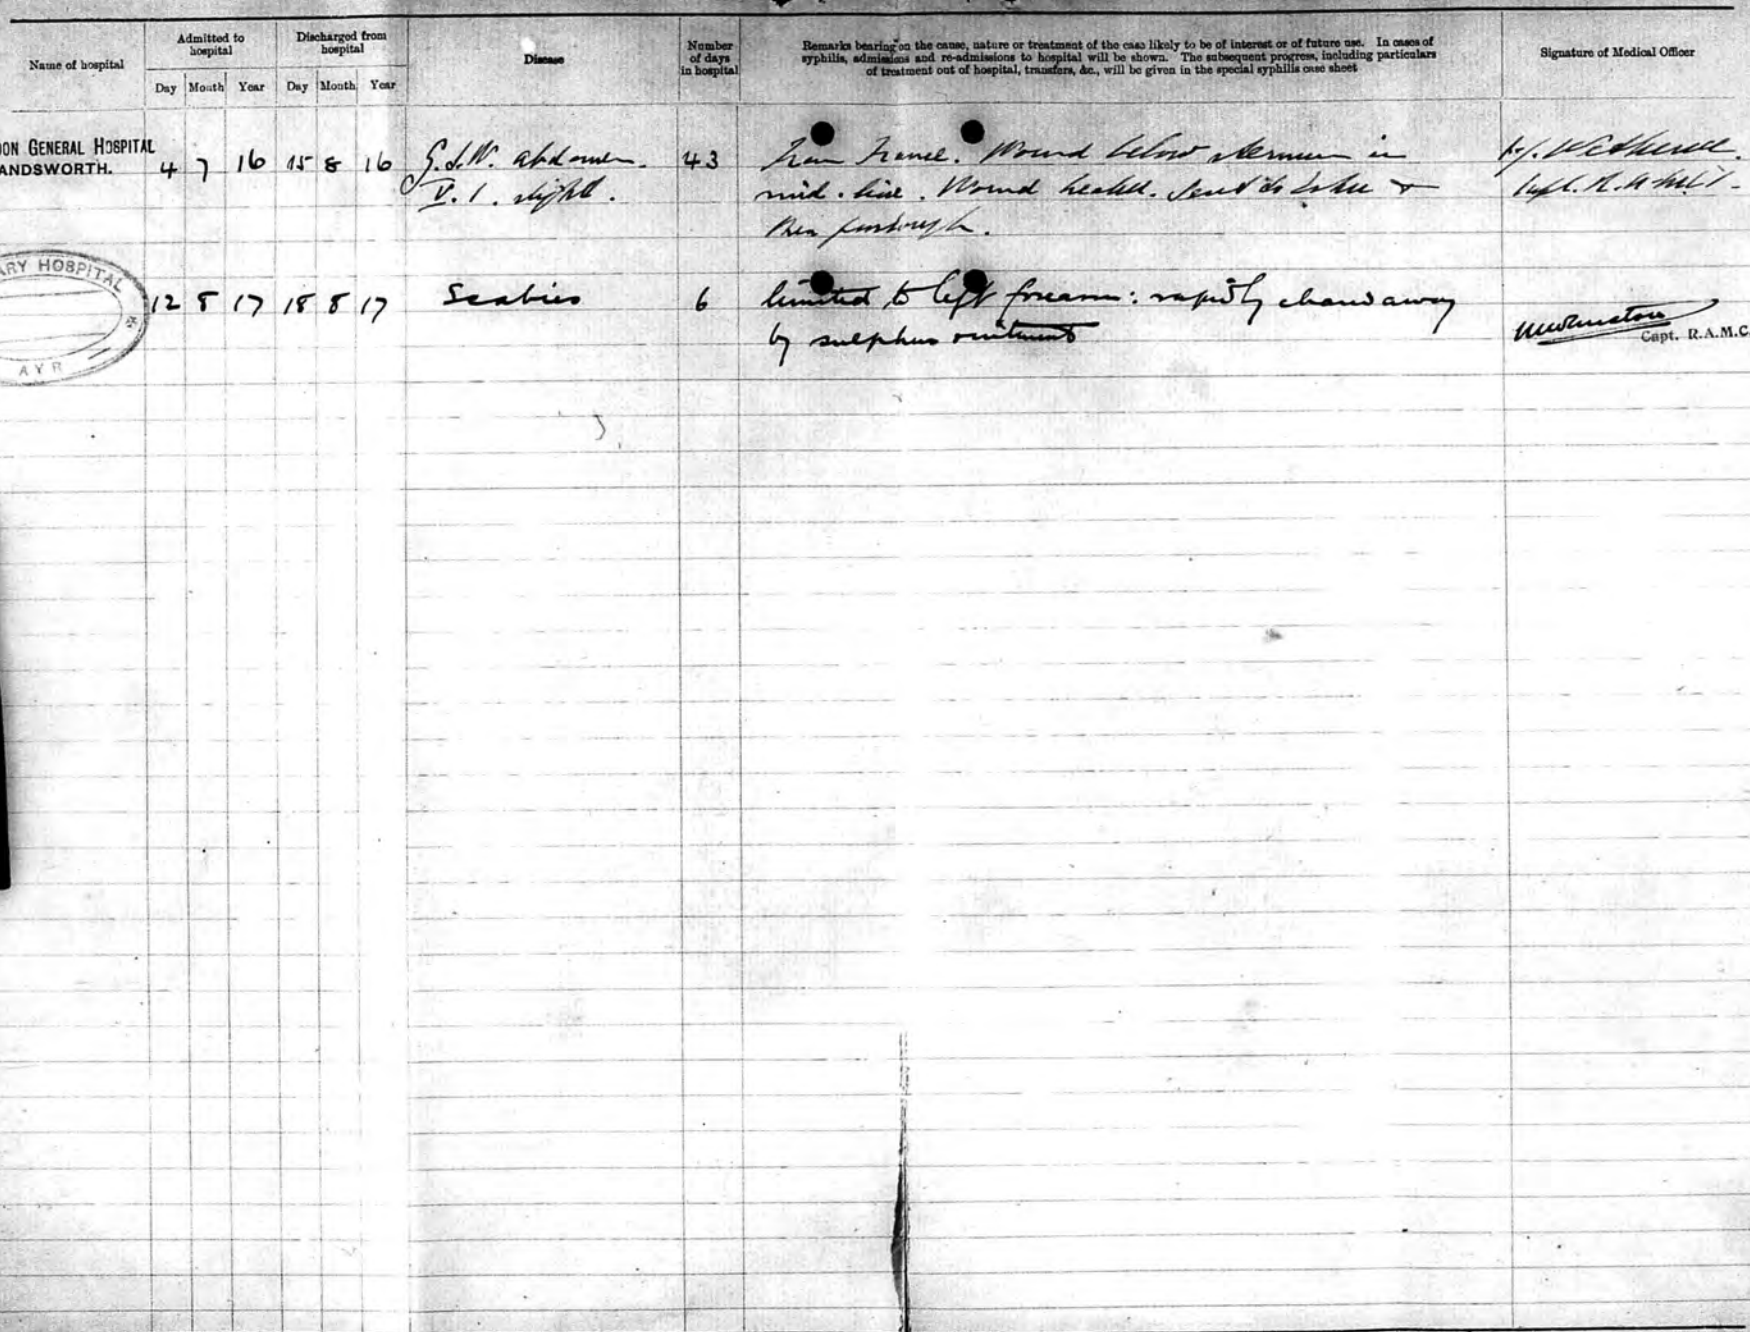 Name of hospital
Admitted to
hospital
Discharged from
hospital
Disease
Number
of days
in hospital
Remarks bearing on the cause, nature or treatment of the case likely to be of interest or of future use. In cases of
syphilis, admissions and re-admissions to hospital will be shown. The subsequent progress, including particulars
of treatment out of hospital, transfers, &c., will be given in the special syphilis case sheet
Signature of Medical Officer
Day Month Year Day Month Year
ON GENERAL HOSPITAL
ANDSWORTH.
4 7 16 15 8 16 G.S.W. abdomen. 43 From France. Wound below sternum in
V. 1. slight. mid. line. Wound healed. Sent to &
then furlough.
ARY HOSPITAL
AYR
12 8 17 18 8 17 Scabies 6 limited to left forearm: rapidly cleared away
by sulphur ointment
Capt. R.A.M.C